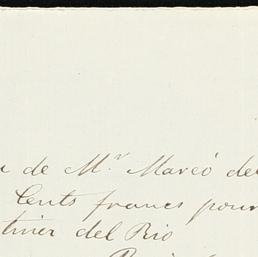 de Mr Marcó de
Cents francs pour
del Rio